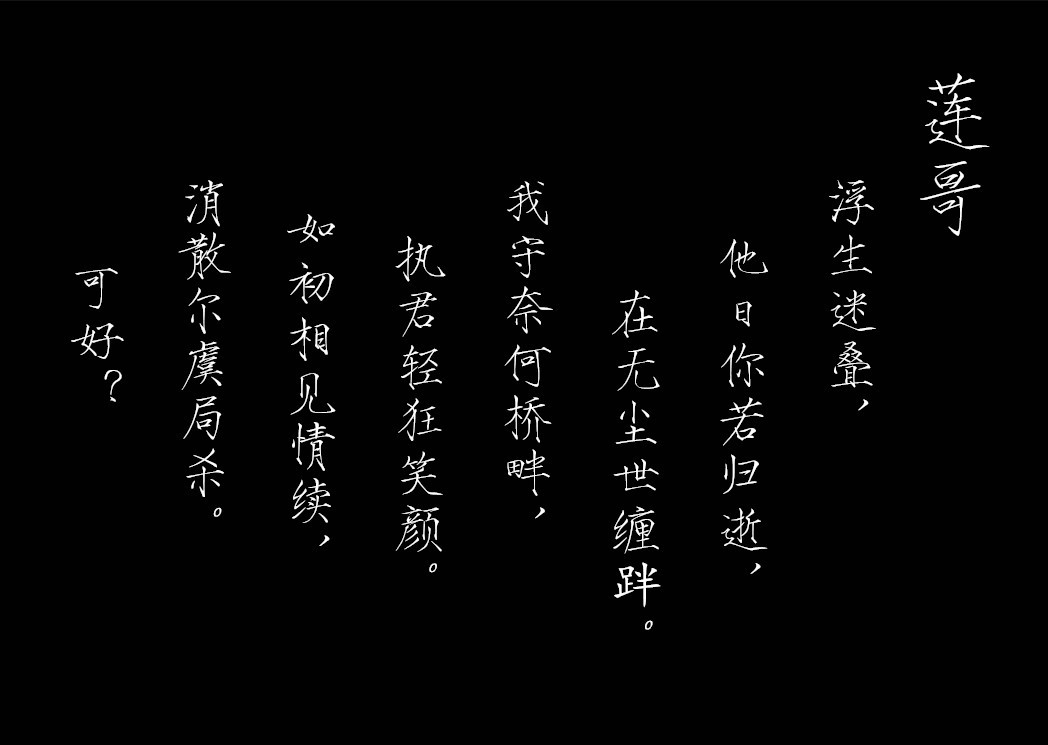 莲哥
浮生迷叠，
他日你若归逝，
在无尘世缠跘。
我守奈何桥畔，
执君轻狂笑颜。
如初相见情续，
消散尔虞局杀。
可好？